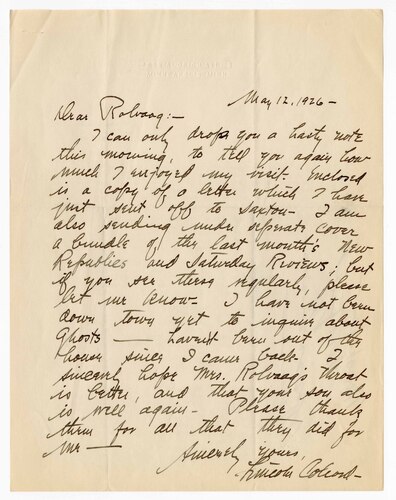 May 12, 1926-
Dear Rolvaag:-
I can only drop you a hasty note
this morning, to tell you again how
much I enjoyed my visit. Enclosed
is a copy of a letter which I have
just sent off to Saxton- I am
also sending under separate cover
a bundle of the last month's New
Republics and Saturday Reviews; but
if you see these regularly, please
let me know- I have not been
down town yet to inquire about
Ghosts — haven't been out of the
house since I came back- I
sincerely hope Mrs. Rolvaag's throat
is better, and that your son also
is well again- Please thank
them for all that they did for
me —
Sincerely yours,
Lincoln Colcord-